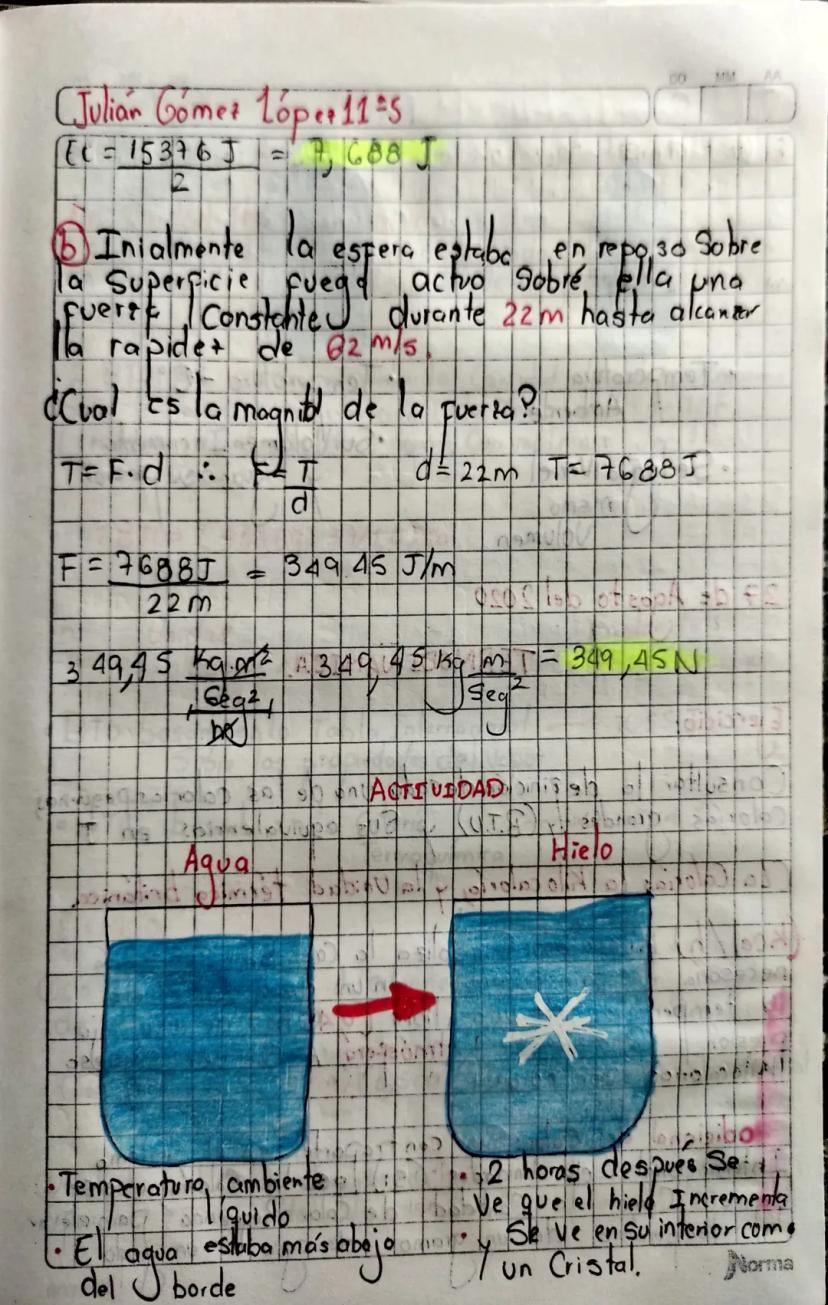 DD MM AA
Julián Gómez López 11°5
Ec = 15376 J / 2 = 7,688 J
b) Inialmente la esfera estaba en reposo sobre
la superficie fuego actuo sobre ella una
fuerza (Constante) durante 22m hasta alcanzar
la rapidez de 62 m/s.
¿Cual es la magnitd de la fuerza?
T = F · d ∴ F = T / d d = 22m T = 7688 J
F = 7688J / 22m = 349.45 J/m
349,45 Kg.m² / Seg² / m 349,45 Kg m / Seg² = 349,45 N
ACTIVIDAD
Agua Hielo
• Temperatura ambiente
y líquido
• El agua estaba más abajo
del borde
• 2 horas después se
ve que el hielo Incrementa
• Se ve en su interior como
y un Cristal.
Norma